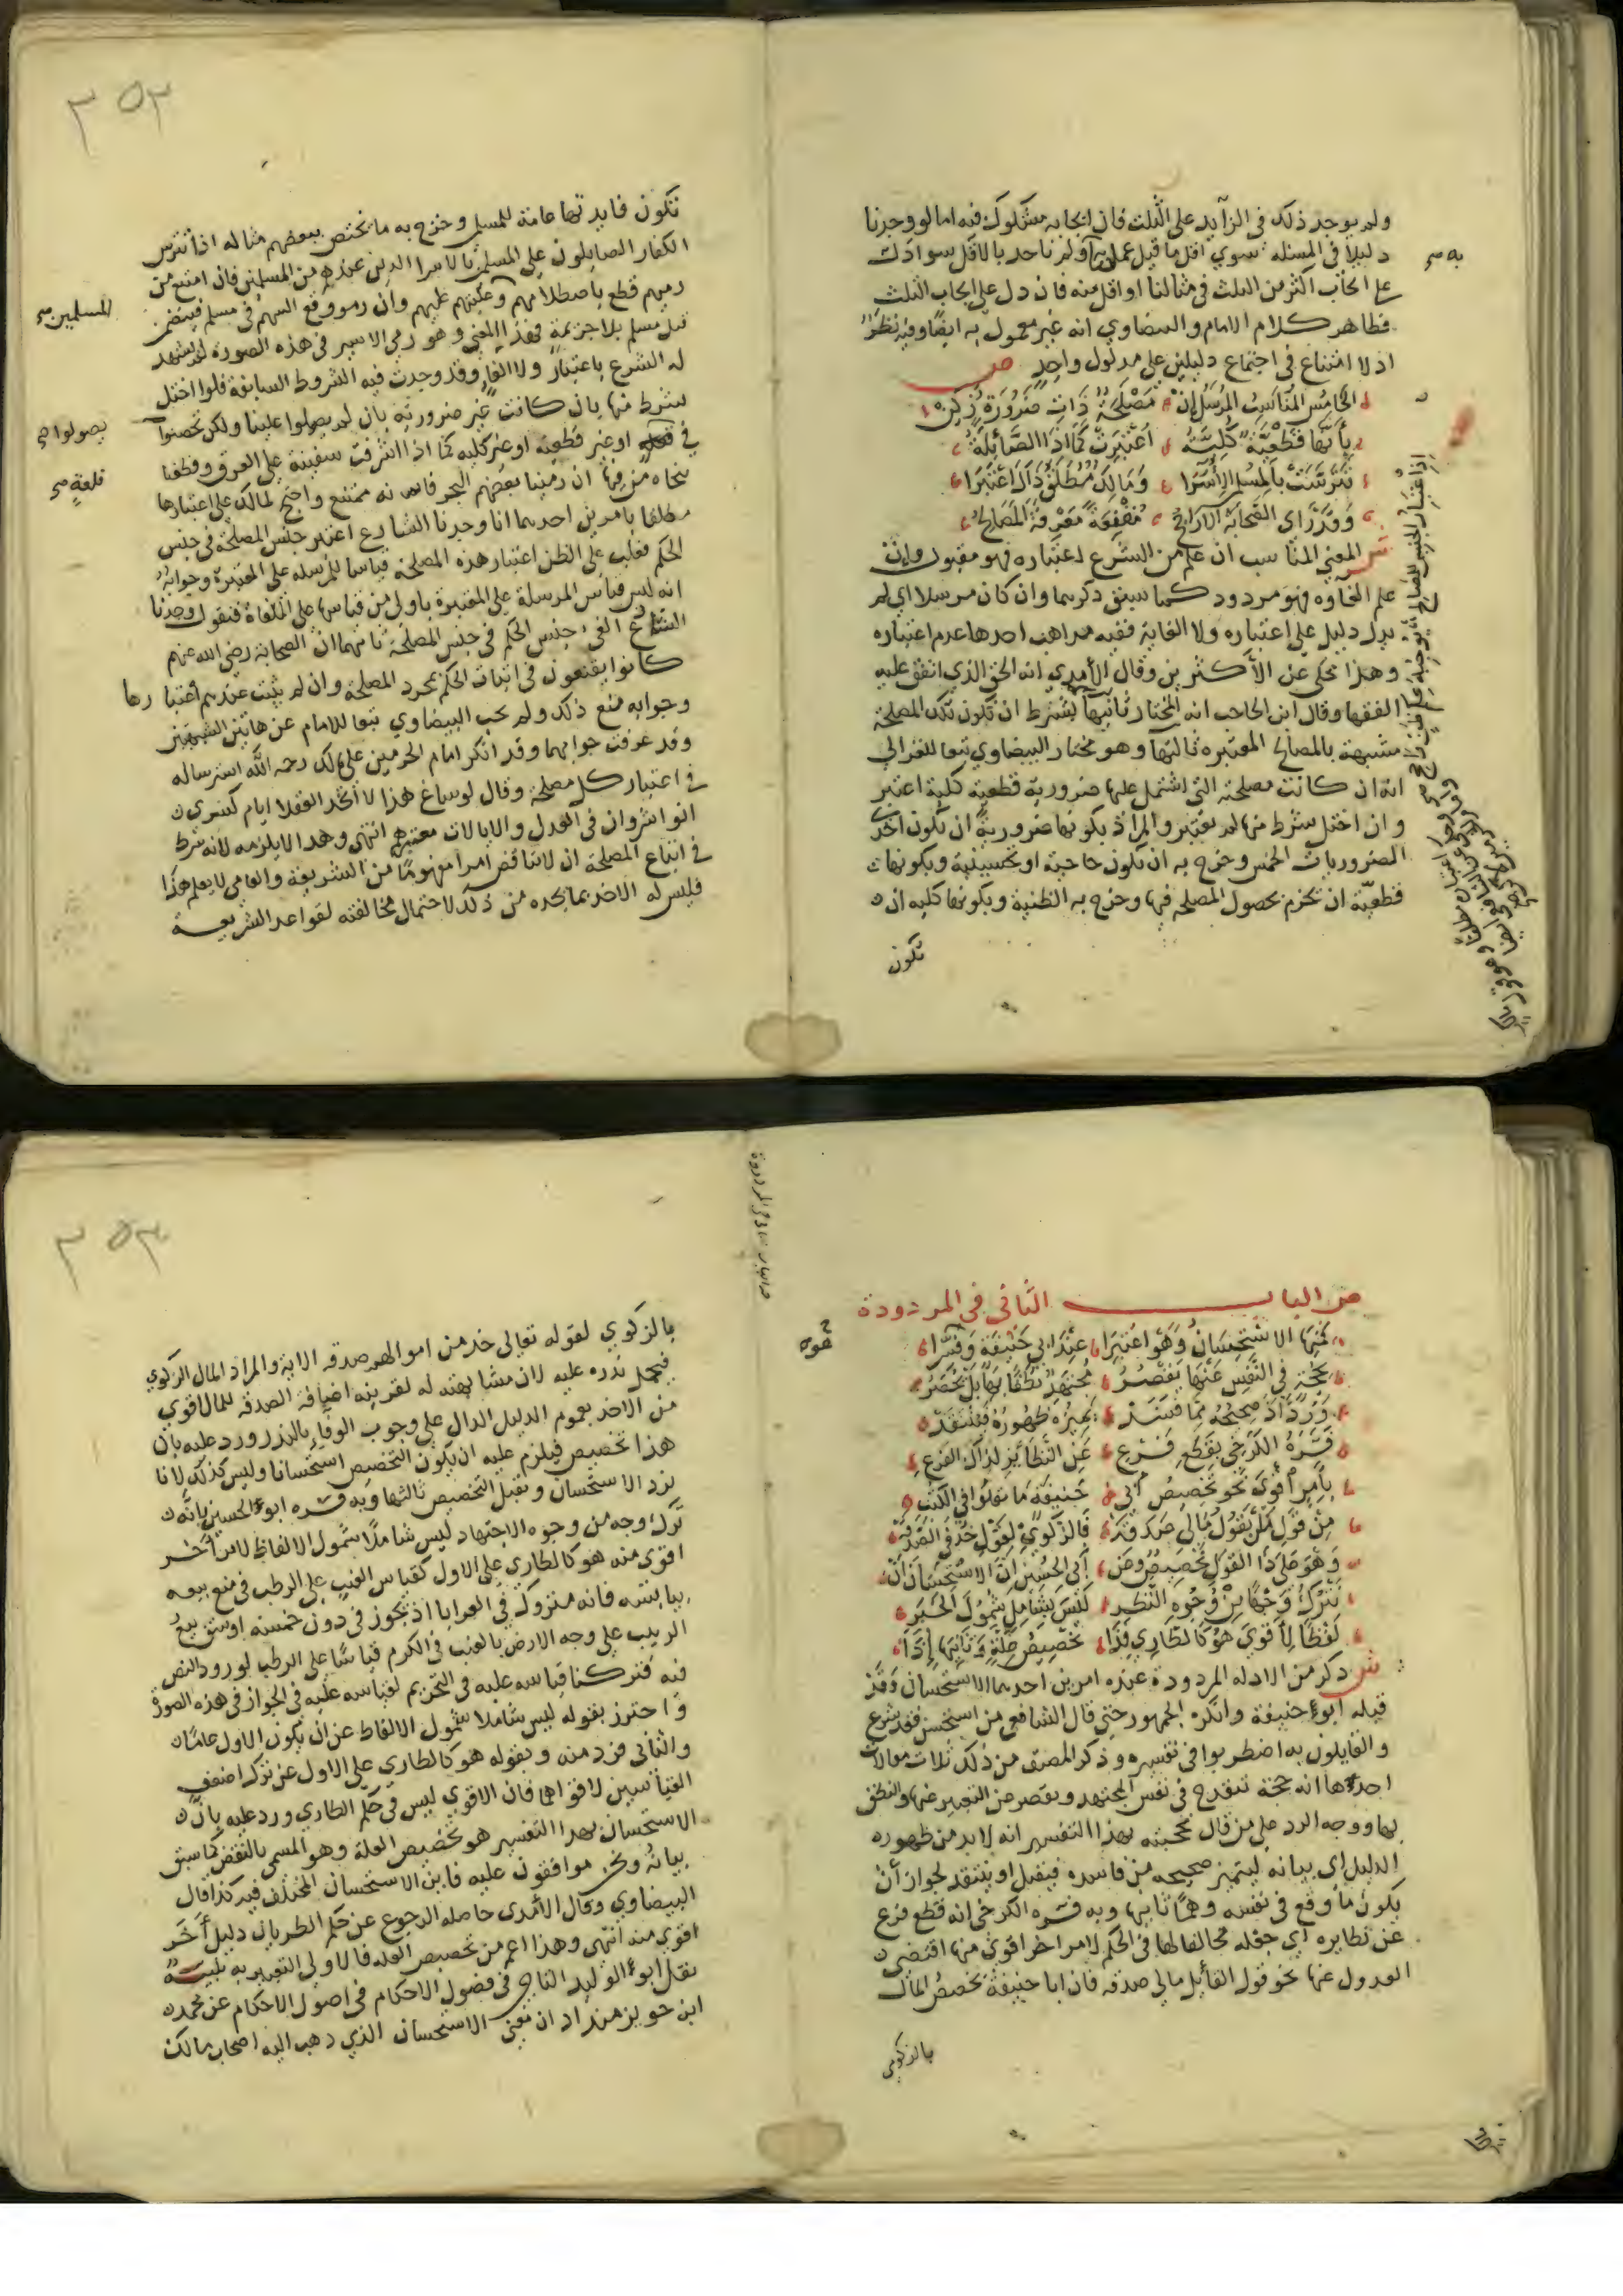 ولم يوجد ذلك في الزايد على الثلث فان ايجابه مشكوك فيه اما لو وجدنا
دليلا في المسئلة سوي اقل ما قيل عملنا به ولم ناخذ بالاقل سوا دل
على ايجاب اكثر من الثلث في مثالنا او اقل منه فان دل على ايجاب الثلث
فظاهر كلام الامام والبيضاوي انه غير معمول به ايضا وفيه نظر
اذ لا امتناع في اجتماع دليلين على مدلول واحد ص
الخامس المناسب المرسل ان مصلحة ذات ضرورة زكن
بانها قطعية كلية اعتبرت كما اذا الصائلة
تترست بالمسلم الاسرا ومالك مطلق ذاك اعتبرا
وقد رأى الصحابة الاراجح مقنعة معرفة المصالح
ش المعني المناسب ان علم من الشرع اعتباره فهو مقبول وان
علم الغاوه فهو مردود كما سبق ذكرهما وان كان مرسلا اي لم
يدل دليل على اعتباره ولا الغايه ففيه مذاهب احدها عدم اعتباره
وهذا محكى عن الاكثرين وقال الآمدي انه الحق الذي اتفق عليه
الفقها وقال ابن الحاجب انه المختار ثانيها بشرط ان تكون تلك المصلحة
مشبهة بالمصالح المعتبره ثالثها وهو مختار البيضاوي تبعا للغزالي
انه ان كانت مصلحته التي اشتمل عليها ضرورية قطعية كلية اعتبر
وان اختل شرط منها لم يعتبر والمراد بكونها ضرورية ان تكون احدى
الضروريات الخمس وخرج به ان تكون حاجية او تحسينية وبكونها
قطعية ان نجزم بحصول المصلحة فيها وخرج به الظنية وبكونها كلية ان
تكون
به صح
٣٥٢
تكون فايدتها عامة للمسلمين وخرج به ما يختص ببعضهم مثاله اذا تترس
الكفار الصايلون على المسلمين بالاسرا الذين عندهم من المسلمين فان امتنع من
رميهم قطع باصطلامهم وغلبتهم عليهم وان رمو وقع السهم في مسلم فيفضي
قتل مسلم بلا جريمة فهذا المعني وهو رمي الاسير في هذه الصورة لم يشهد
له الشرع باعتبار ولا الغا وقد وجدت فيه الشروط السابقة فلو اختل
شرط منها بان كانت غير ضرورية بان لم يصولوا علينا ولكن تحصنوا
في قلعة او غير قطعية او غير كلية كما اذا اشرفت سفينة على الغرق وقطعنا
بنجاة من فيها ان رمينا بعضهم البحر فانه ممتنع واحتج لمالك على اعتبارها
مطلقا بامرين احدهما انا وجدنا الشارع اعتبر جنس المصلحة في جنس
الحكم فغلب على الظن اعتبار هذه المصلحة قياسا للمرسلة على المعتبرة وجوابه
انه ليس قياس المرسلة على المعتبرة باولى من قياسها على الملغاة فنقول وجدنا
الشارع الغى جنس الحكم في جنس المصلحة ثانيهما ان الصحابة رضي الله عنهم
كانوا يقنعون في اثبات الحكم بمجرد المصلحة وان لم يثبت عندهم اعتبارها
وجوابه منع ذلك ولم يجب البيضاوي تبعا للامام عن هاتين الشبهتين
وقد عرفت جوابهما وقد انكر امام الحرمين على مالك رحمه الله استرساله
في اعتبار كل مصلحة وقال لو ساغ هذا لاتخذ العقلا ايام كسرى
انوا شروان في العدل والايالات معتبرهم انتهى وهذا لا يلزمه لانه شرط
في اتباع المصلحة ان لا تناقض امرا مفهوما من الشريعة والعامي لا يعلم هذا
فليس له الاخذ بما يجده من ذلك لاحتمال مخالفته لقواعد الشريعة
للمسلمين صح
يصولوا صح
قلعة صح
ص الباب الثاني في المردودة
منها الاستحسان وهو اعتبرا عند ابي حنيفة وفسرا
بحجة في النفس عنها يقصر مجتهد نطقا بها بل يحصر
ورد اذ صحيحه مما فسد يميزه ظهوره فينتقد
فسره الكرخي بقطع فرع عن النظائر لذاك الفرع
بامر اقوى نحو تخصيص ابي حنيفة ما نقلوا في الكتب
من قول من يقول مالي صدقه فالزكوي لقول خذ في الصدقه
وهو على ذا القول تخصيص وعن ابي الحسين ان الاستحسان ان
نترك وجها من وجوه النظر ليس بشامل شمول الخبر
لفظا لاقوى هو كالطاري فذا تخصيص علة وثانيها اذا
ش ذكر من الادله المردودة عنده امرين احدهما الاستحسان وقد
قبله ابو حنيفة وانكره الجمهور حتى قال الشافعي من استحسن فقد شرع
والقايلون به اضطربوا في تفسيره وذكر المصنف من ذلك ثلاث مقالات
احدها انه حجة تنقدح في نفس المجتهد ويقصر عن التعبير عنها والنطق
بها ووجه الرد على من قال بحجيته بهذا التفسير انه لا بد من ظهوره
الدليل اي بيانه ليتميز صحيحه من فاسده فيقبل او ينتقد لجواز ان
يكون ما وقع في نفسه وهما ثانيها وبه فسره الكرخي انه قطع فرع
عن نظايره اي جعله مخالفا لها في الحكم لامر اخر اقوى منها اقتضى
العدول عنها نحو قول القائل مالي صدقه فان ابا حنيفة تخصص المال
بالزكوي
٣٥٣
بالزكوي لقوله تعالى خذ من اموالهم صدقه الاية والمراد المال الزكوي
فيحمل نذره عليه لان مشابهته له لقرينه اضافة الصدقه للمال اقوى
من الاخذ بعموم الدليل الدال على وجوب الوفاء بالنذر ورد عليه بان
هذا تخصيص فيلزم عليه ان يكون التخصيص استحسانا وليس كذلك لانا
نرد الاستحسان ونقبل التخصيص ثالثها وبه فسره ابو الحسين بانه
ترك وجه من وجوه الاجتهاد ليس شاملا شمول الالفاظ لامر اخر
اقوى منه هو كالطاري على الاول كقياس العنب على الرطب في منع بيعه
بيابسه فانه متروك في العرايا اذ تجوز في دون خمسة اوسق بيع
الزبيب على وجه الارض بالعنب في الكرم قياسا على الرطب لورود النص
فيه فتركنا قياسه عليه في التحريم لقياسه عليه في الجواز في هذه الصورة
واحترز بقوله ليس شاملا شمول الالفاظ عن ان يكون الاول عاما
والثاني فرد منه وبقوله هو كالطاري على الاول عن ترك اضعف
القياسين لاقواهما فان الاقوي ليس في حكم الطاري ورد عليه بان
الاستحسان بهذا التفسير هو تخصيص العلة وهو المسمى بالنقض كما سبق
بيانه ونحن موافقون عليه فاين الاستحسان المختلف فيه كذا قال
البيضاوي وقال الآمدي حاصله الرجوع عن حكم الطريان دليل اخر
اقوى منه انتهى وهذا اعم من تخصيص العلة فالاولى التعبير به
نقل ابو الوليد الباجي في فصول الاحكام في اصول الاحكام عن محمد
ابن خويز منداد ان معنى الاستحسان الذي ذهب اليه اصحاب مالك